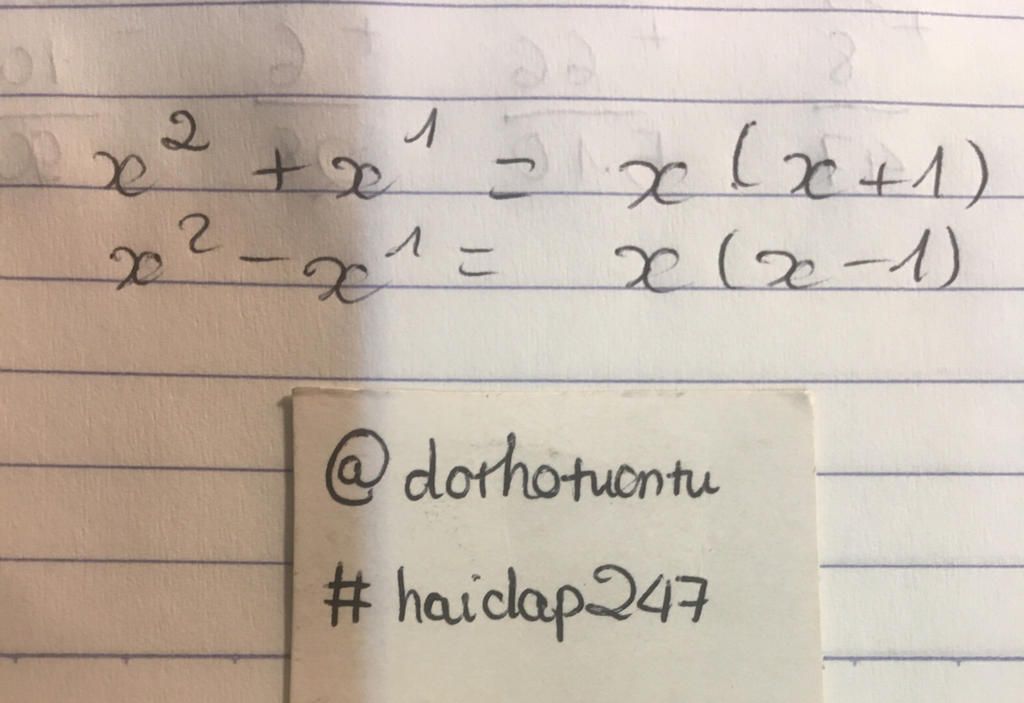 x² + x¹ = x (x+1)
x² - x¹ = x (x-1)
@dothotuontu
# haidap247